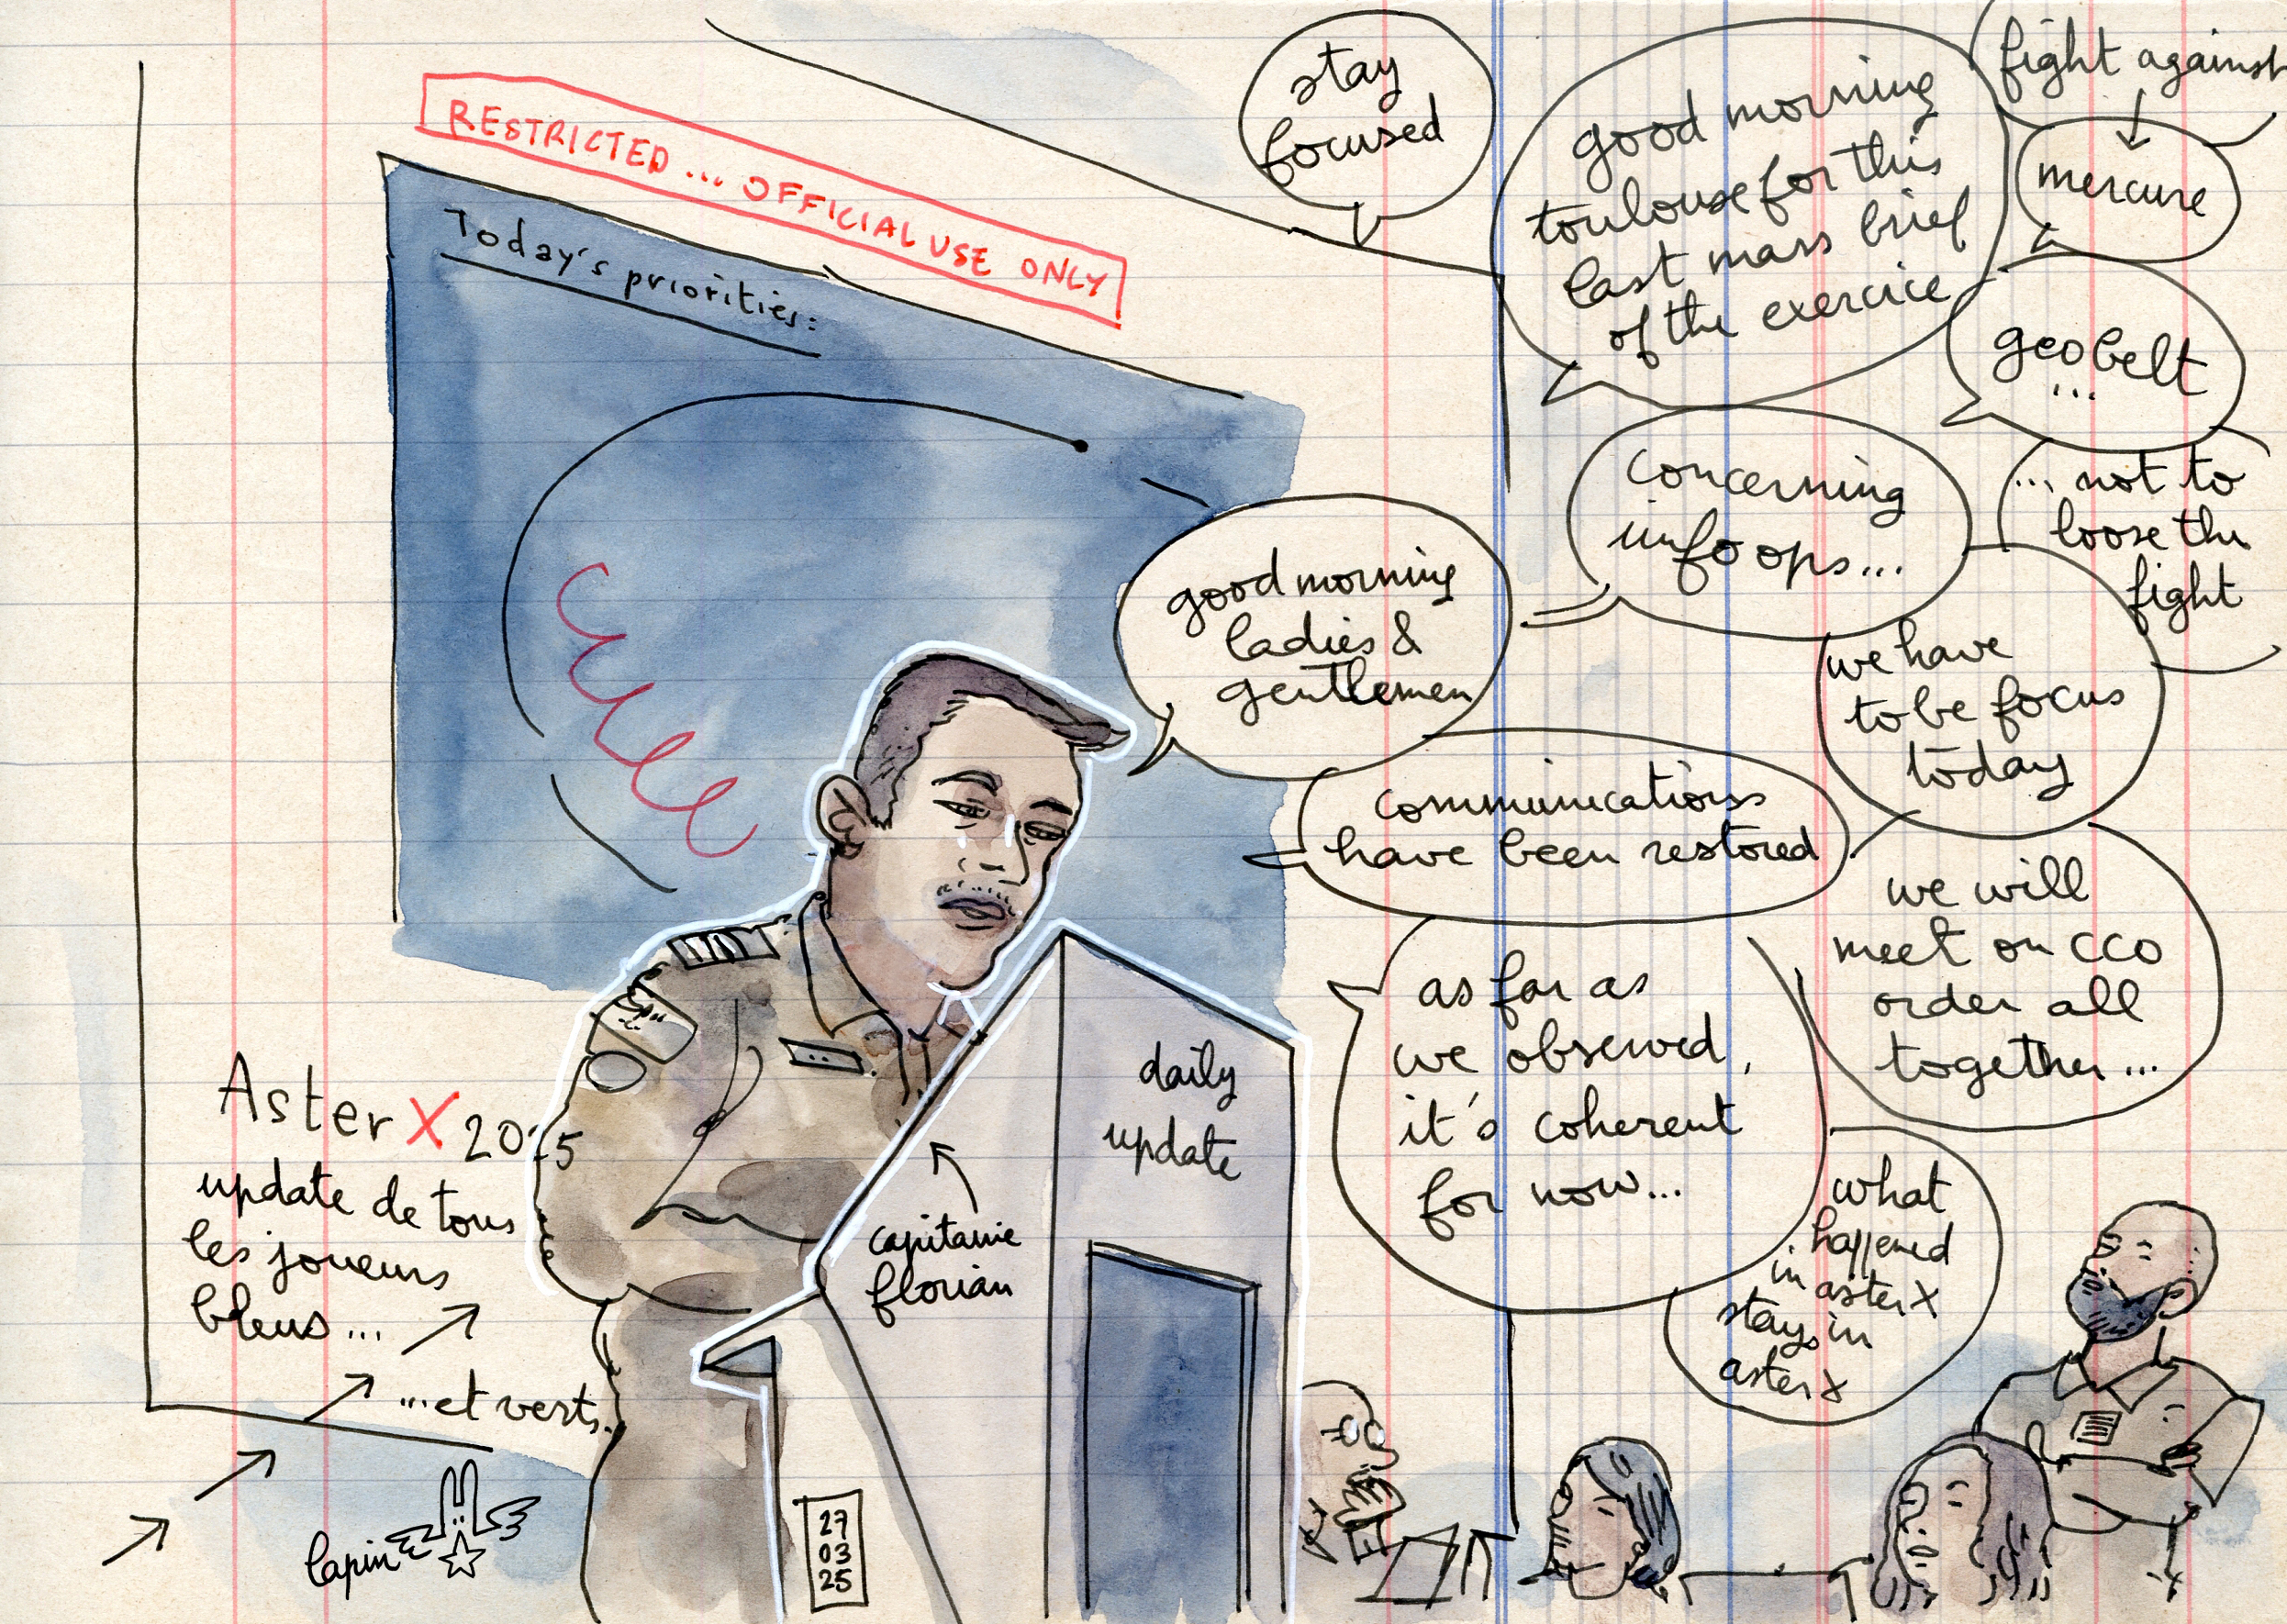 RESTRICTED ... OFFICIAL USE ONLY
Today's priorities:
stay
focused
good morning
toulouse for this
last mass brief
of the exercice
fight against
mercure
geobelt
...
concerning
info ops...
... not to
loose the
fight
good morning
ladies &
gentlemen
we have
to be focus
today
communications
have been restored
we will
meet on CCO
order all
together...
as far as
we observed,
it's coherent
for now...
what
happened
in aster X
stays in
aster X
daily
update
capitaine
florian
Aster X 2025
update de tous
les joueurs
bleus...
...et verts.
lapin
27
03
25